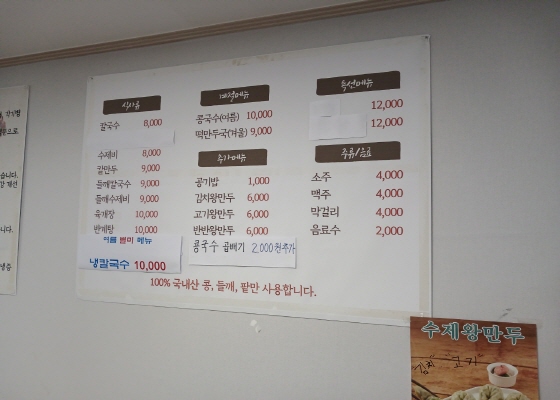 식사류
칼국수 8,000
수제비 8,000
칼만두 9,000
들깨칼국수 9,000
들깨수제비 9,000
육개장 10,000
반계탕 10,000
여름 별미 메뉴
냉칼국수 10,000
계절메뉴
콩국수(여름) 10,000
떡만두국(겨울) 9,000
추가메뉴
공기밥 1,000
김치왕만두 6,000
고기왕만두 6,000
반반왕만두 6,000
콩국수 곱배기 2,000원추가
특선메뉴
12,000
12,000
주류/음료
소주 4,000
맥주 4,000
막걸리 4,000
음료수 2,000
100% 국내산 콩, 들깨, 팥만 사용합니다.
수제왕만두
김치 고기